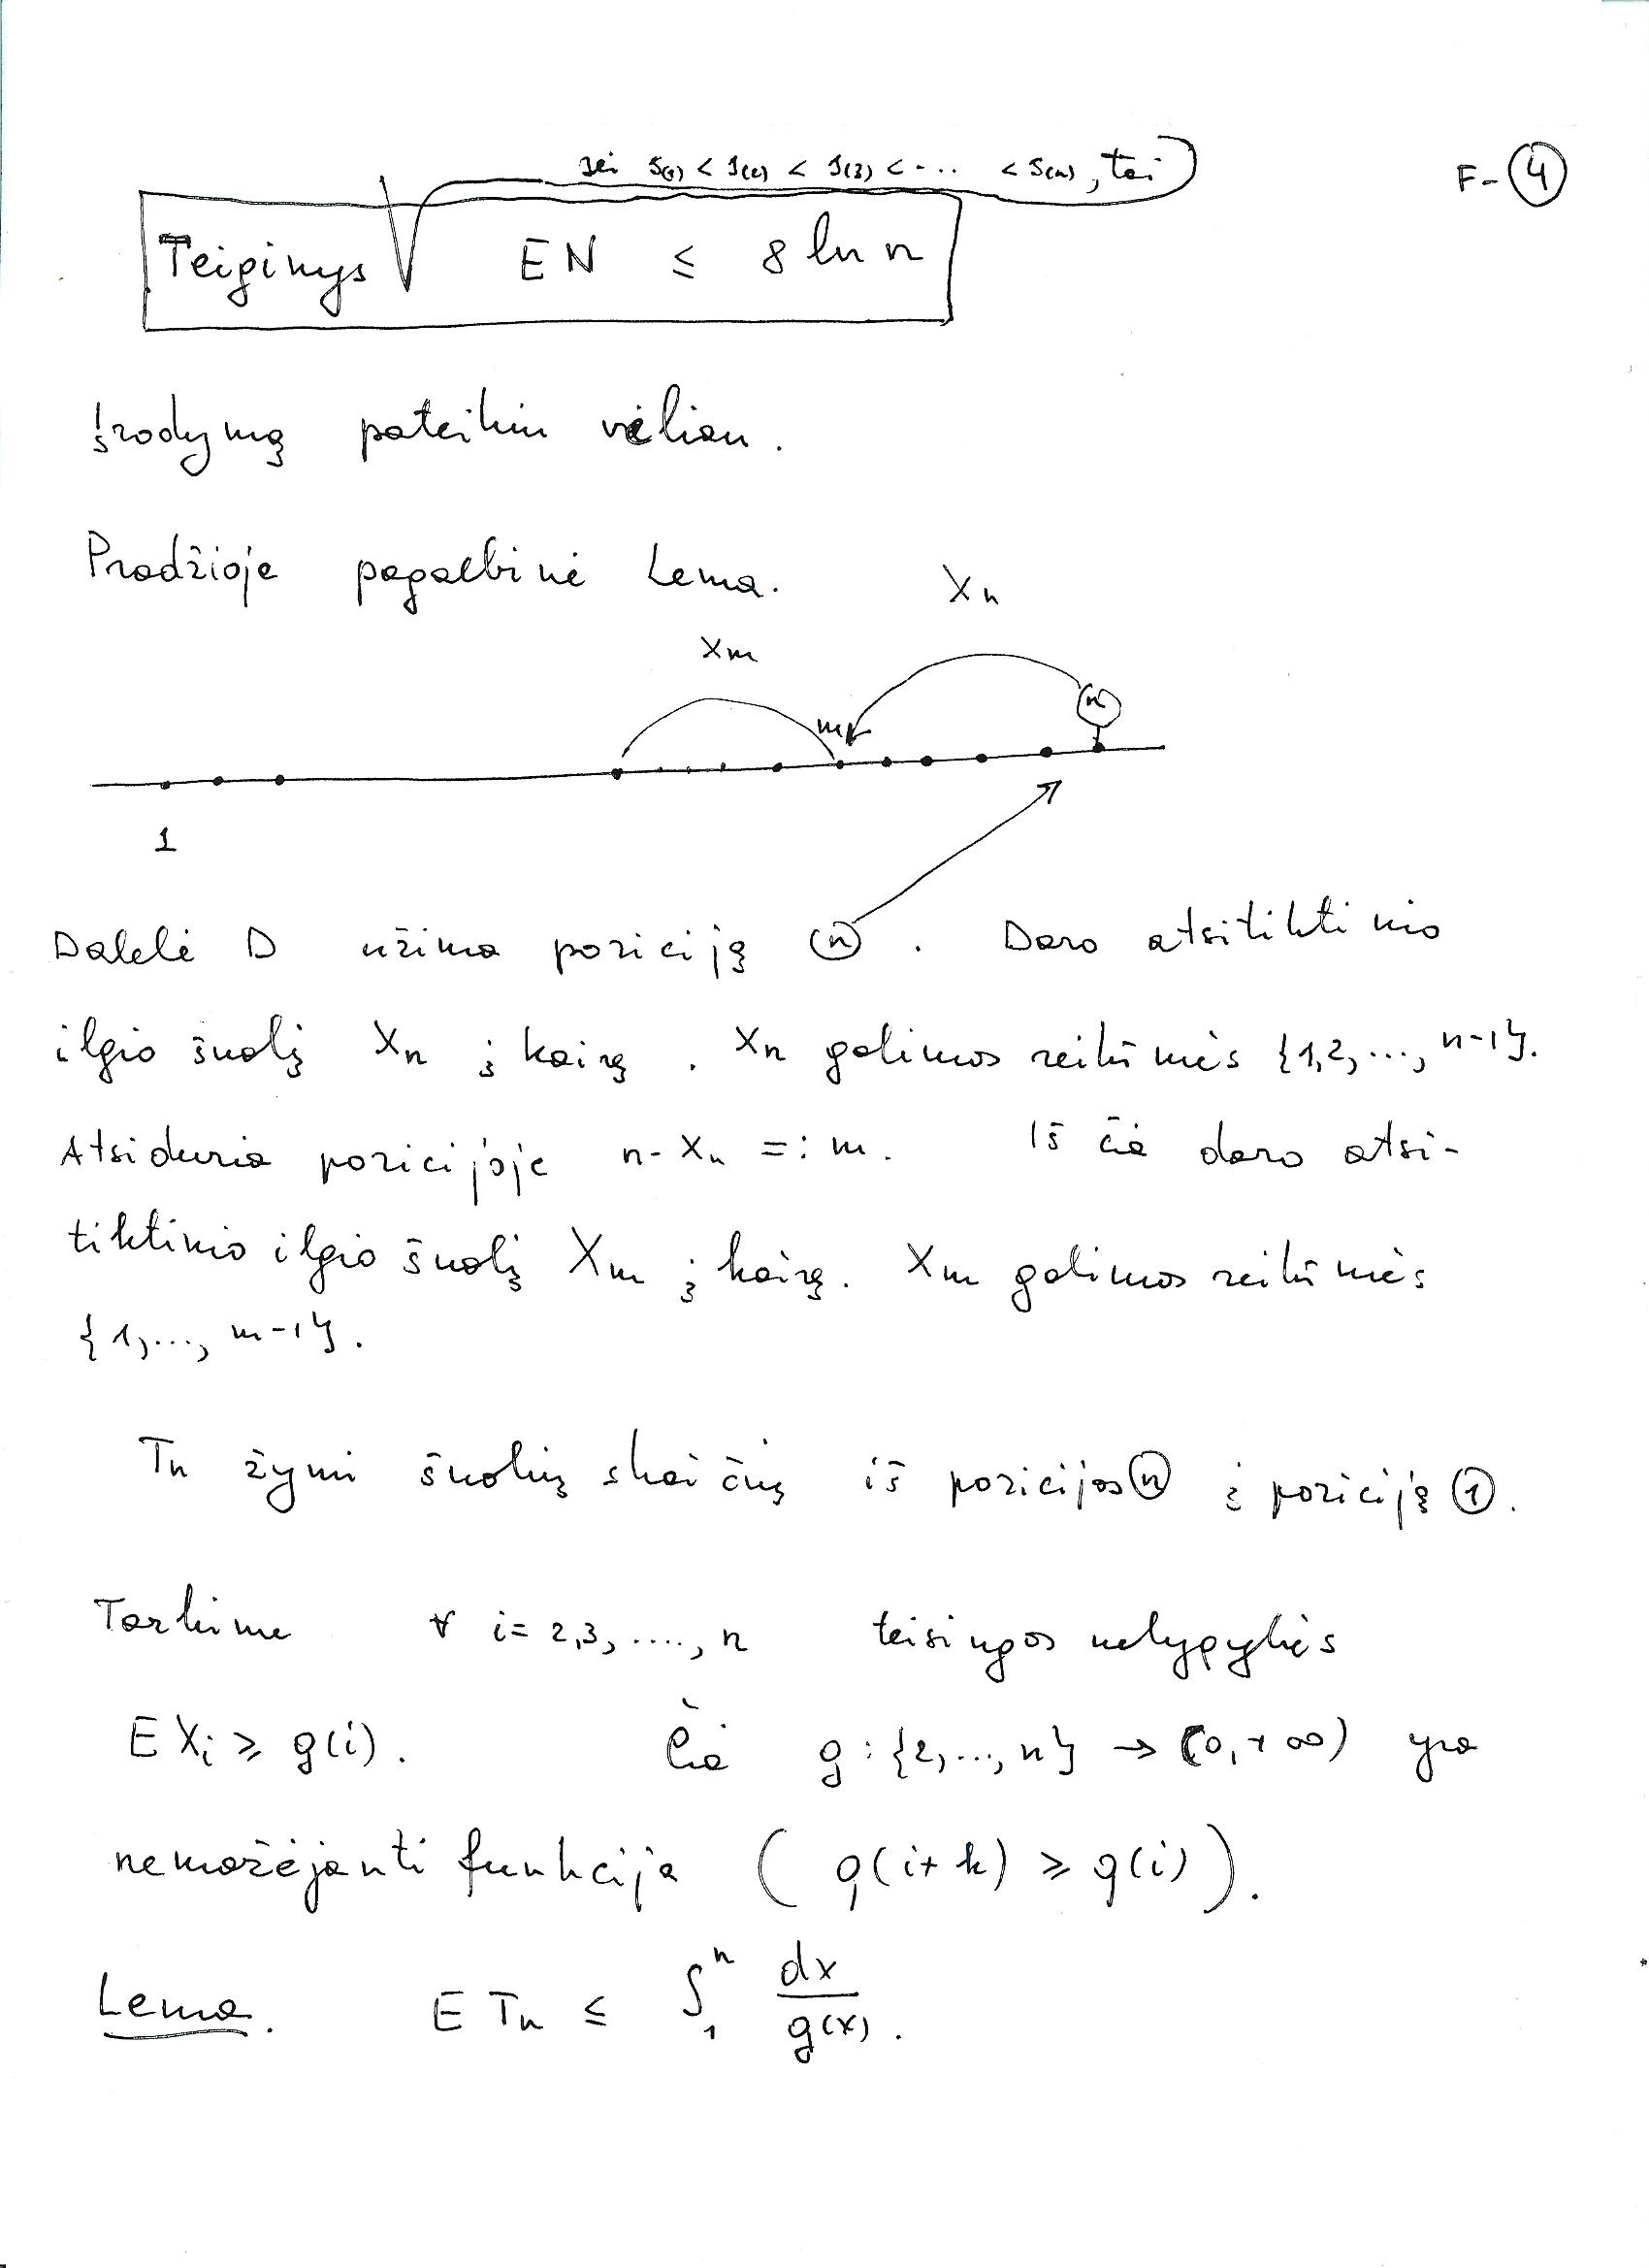 F-④
Jei S(1) < S(2) < S(3) < ... < S(n), tai
Teiginys √ EN ≤ 8 ln n
Įrodymą pateiksiu vėliau.
Pradžioje pagalbinė Lema.
Xn
Xm
m
n
1
Dalelė D užima poziciją ⓝ. Daro atsitiktinio
ilgio šuolį Xn į kairę. Xn galimos reikšmės {1,2,...,n-1}.
Atsiduria pozicijoje n-Xn =: m. Iš čia daro atsi-
tiktinio ilgio šuolį Xm į kairę. Xm galimos reikšmės
{1,..., m-1}.
Tn žymi šuolių skaičių iš pozicijos ⓝ į poziciją ①.
Tarkime ∀ i=2,3,....,n teisingos nelygybės
E Xi ≥ g(i). Čia g:{2,...,n} → (0,+∞) yra
nemažėjanti funkcija (g(i+k) ≥ g(i)).
Lema. E Tn ≤ ∫₁ⁿ dx/g(x).